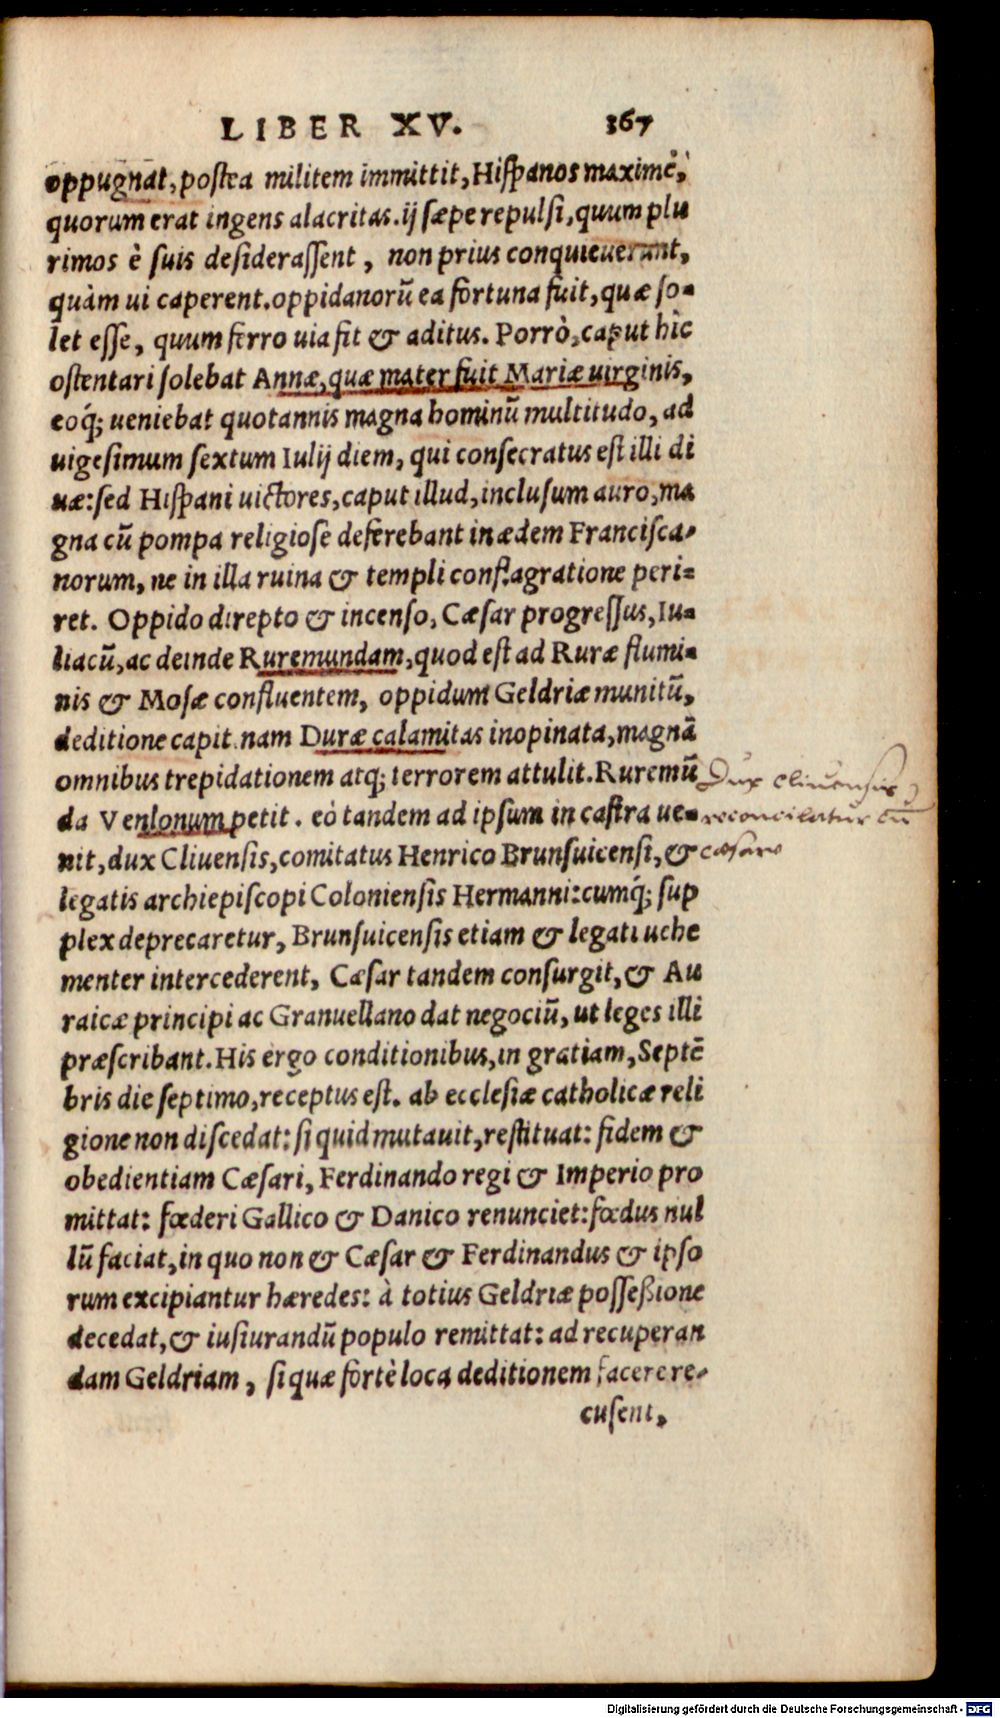 LIBER XV. 367
oppugnat, postea militem immittit, Hispanos maximè,
quorum erat ingens alacritas. ij sæpe repulsi, quum plu
rimos è suis desiderassent, non prius conquieuerunt,
quàm ui caperent. oppidanorū ea fortuna fuit, quæ so-
let esse, quum ferro uia fit & aditus. Porrò, caput hîc
ostentari solebat Annæ, quæ mater fuit Mariæ uirginis,
eoq́; ueniebat quotannis magna hominū multitudo, ad
uigesimum sextum Iulij diem, qui consecratus est illi di
uæ: sed Hispani uictores, caput illud, inclusum auro, ma
gna cū pompa religiose deferebant in ædem Francisca-
norum, ne in illa ruina & templi conflagratione peri-
ret. Oppido direpto & incenso, Cæsar progressus, Iu-
liacū, ac deinde Ruremundam, quod est ad Ruræ flumi-
nis & Mosæ confluentem, oppidum Geldriæ munitū,
deditione capit. nam Duræ calamitas inopinata, magnā
omnibus trepidationem atq; terrorem attulit. Ruremū
da Venlonum petit. eò tandem ad ipsum in castra ue-
nit, dux Cliuensis, comitatus Henrico Brunsuicensi, &
legatis archiepiscopi Coloniensis Hermanni: cumq́; sup
plex deprecaretur, Brunsuicensis etiam & legati uehe
menter intercederent, Cæsar tandem consurgit, & Au
raicæ principi ac Granuellano dat negociū, ut leges illi
præscribant. His ergo conditionibus, in gratiam, Septē
bris die septimo, receptus est. ab ecclesiæ catholicæ reli
gione non discedat: si quid mutauit, restituat: fidem &
obedientiam Cæsari, Ferdinando regi & Imperio pro
mittat: fœderi Gallico & Danico renunciet: fœdus nul
lū faciat, in quo non & Cæsar & Ferdinandus & ipso
rum excipiantur hæredes: à totius Geldriæ possessione
decedat, & iusiurandū populo remittat: ad recuperan
dam Geldriam, si quæ fortè loca deditionem facere re-
cusent,
Dux cliuensis
reconcilatur cū
cæsare
Digitalisierung gefördert durch die Deutsche Forschungsgemeinschaft - DFG